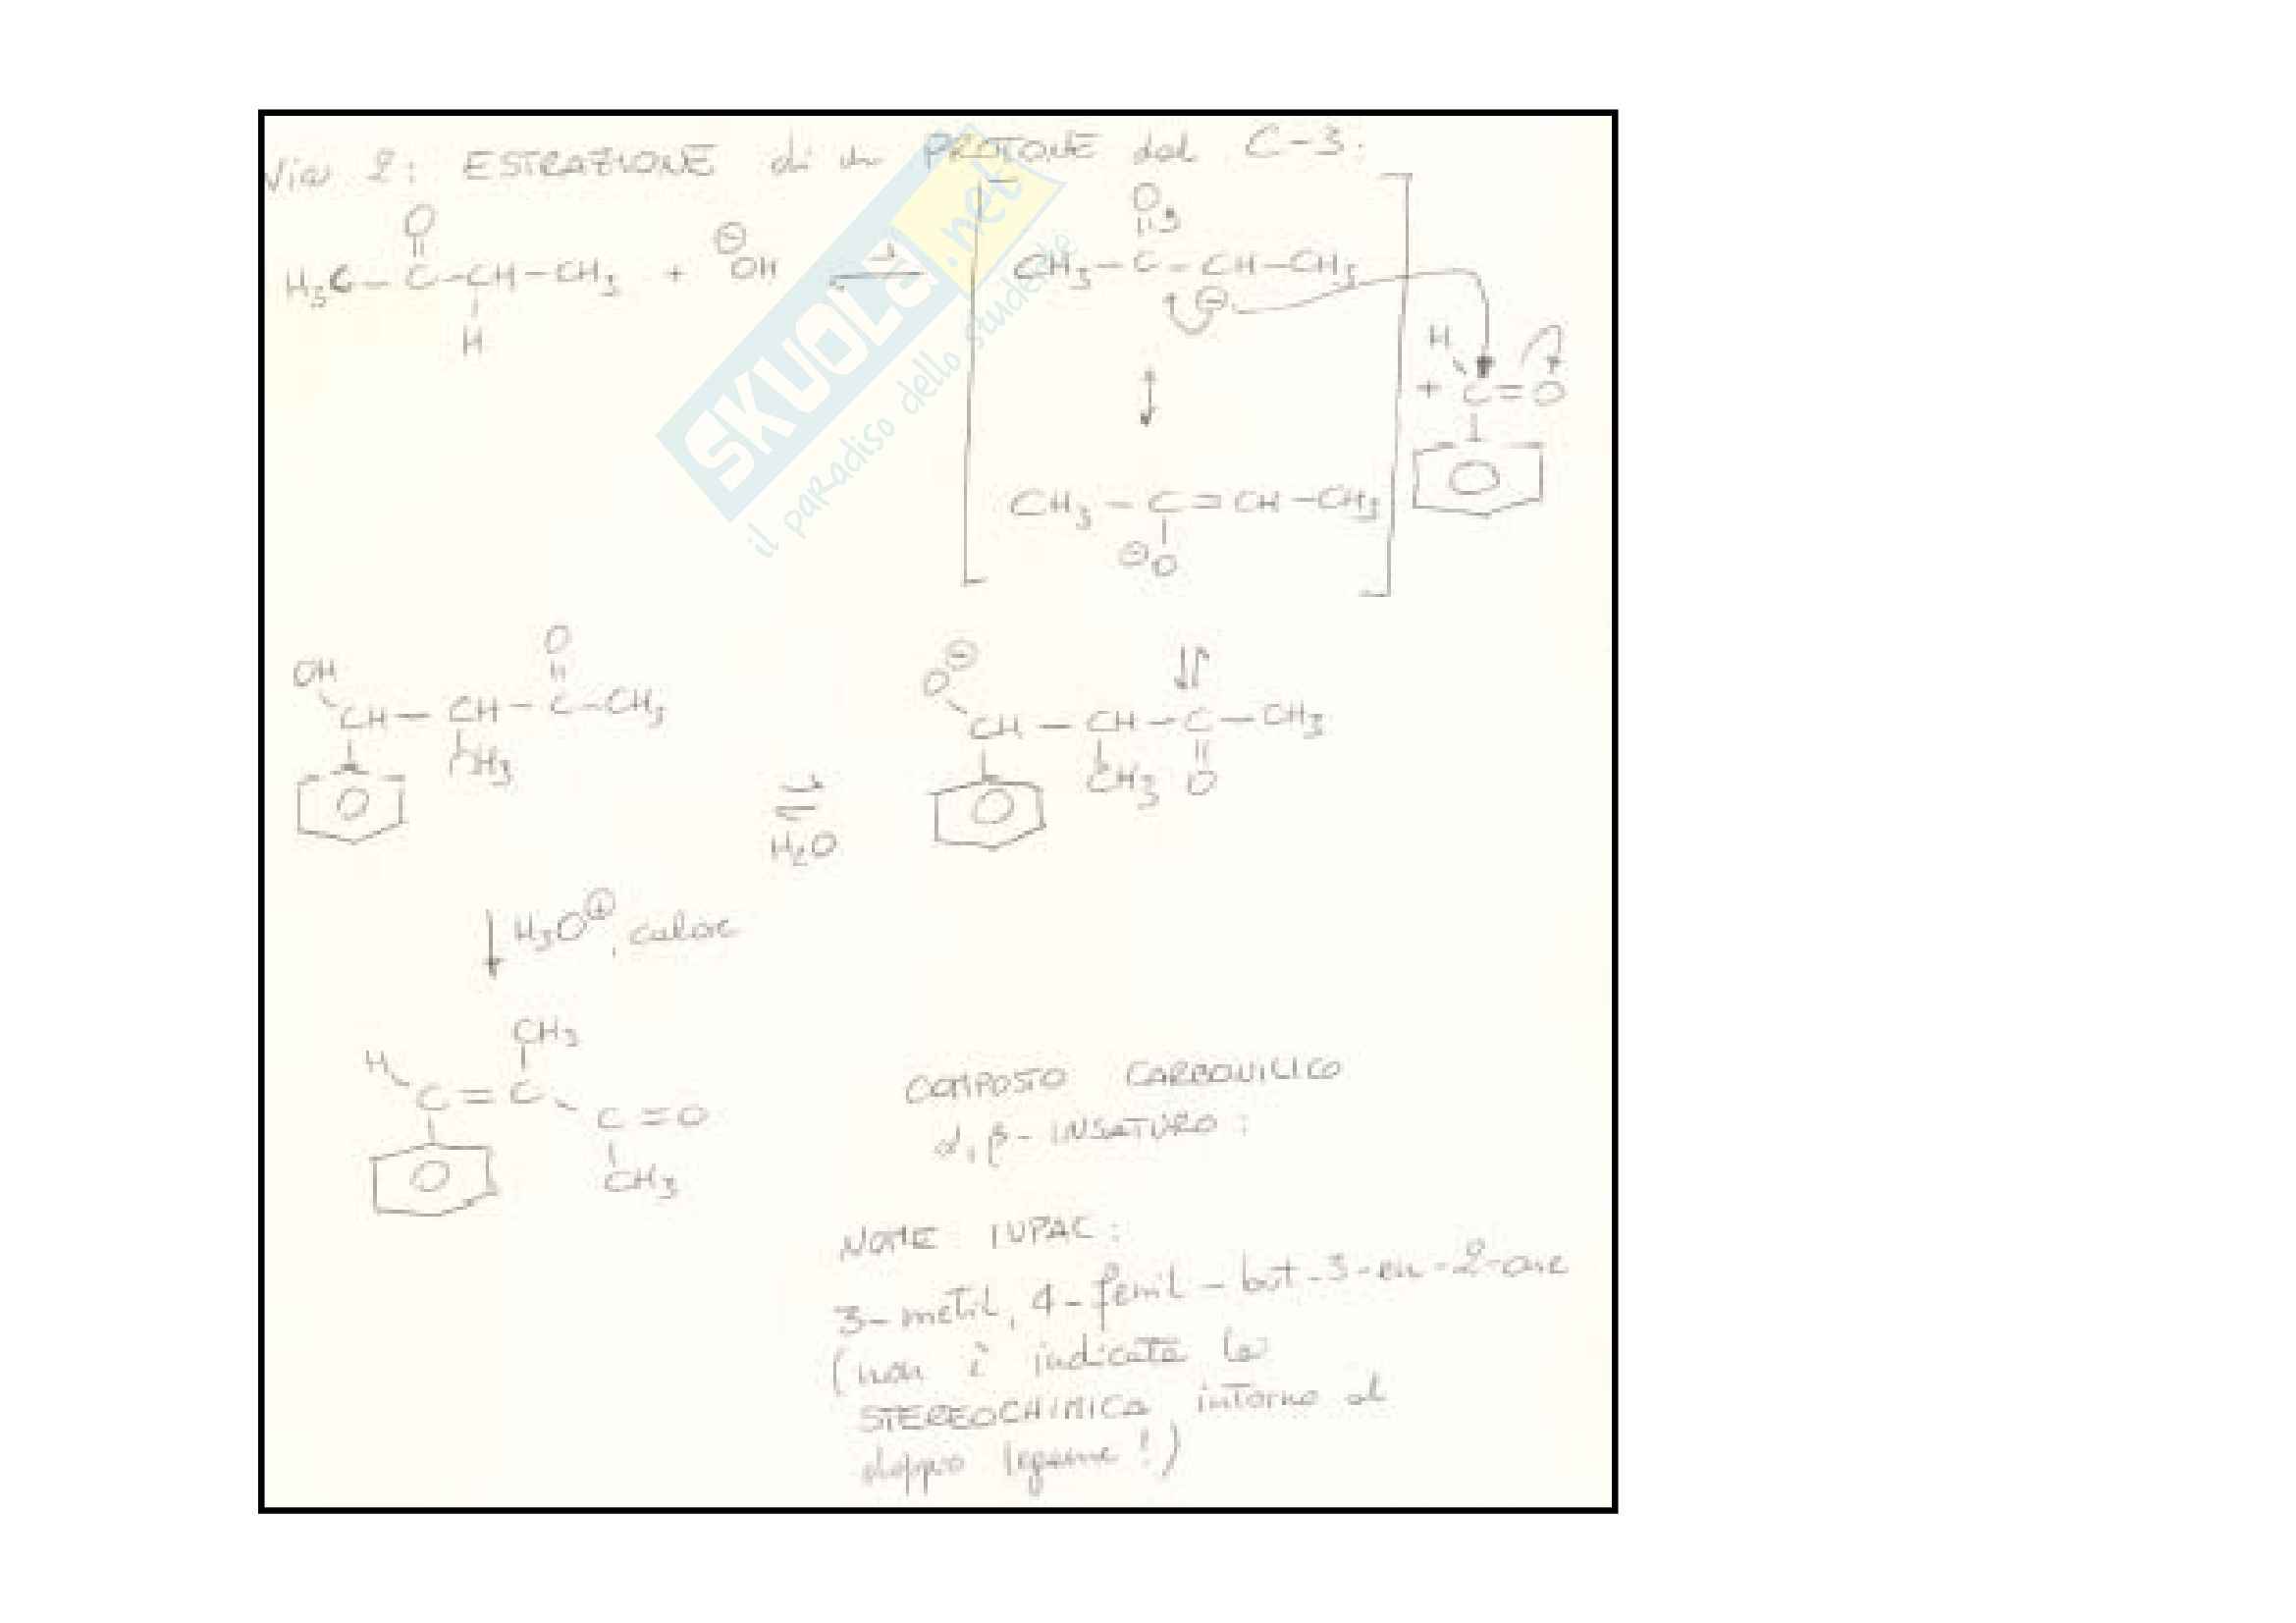 Via 2: ESTRAZIONE di un PROTONE dal C-3.
O
H3C - C - CH - CH3 + ⊖OH
H
O
CH3 - C - CH - CH3
⊖
H
+ C = O
CH3 - C = CH - CH3
⊖O
OH
O
CH - CH - C - CH3
CH3
H2O
O⊖
CH - CH - C - CH3
CH3 O
H3O⊕, calore
CH3
H
C = C
C = O
CH3
COMPOSTO CARBONILICO
α,β-INSATURO:
NOME IUPAC:
3-metil, 4-fenil-but-3-en-2-one
(non è indicata la
STEREOCHIMICA intorno al
doppio legame!)
SKUOLA.net
il paradiso dello studente